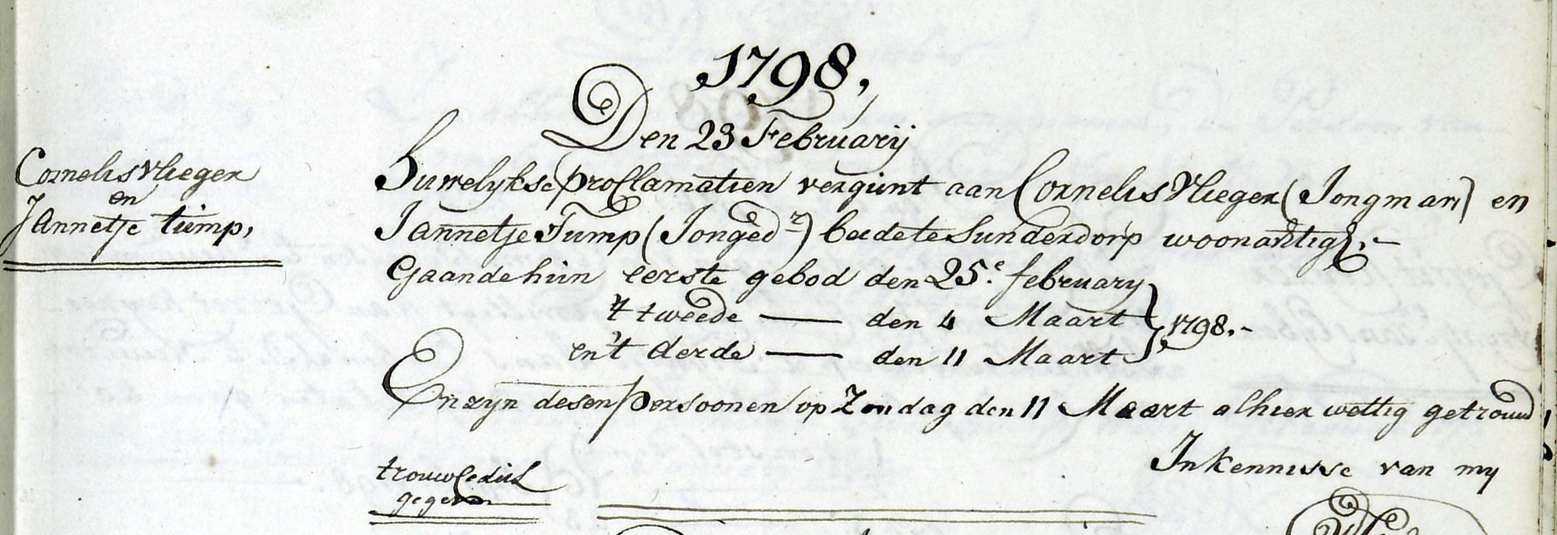 1798,
Den 23 Februarij
Cornelis Vlieger
en
Jannetje tump,
Huwelykse proclamatien vergunt aan Cornelis Vlieger (Jongman) en
Jannetje Tump (Jonged.r) beide te Sunderdorp woonachtig.—
Gaande hun eerste gebod den 25.e february
't tweede — den 4 Maart
en 't derde — den 11 Maart } 1798.—
En zyn desen persoonen op Zondag den 11 Maart alhier wettig getrouwd,
In kennisse van my
trouwcedul
gegeven